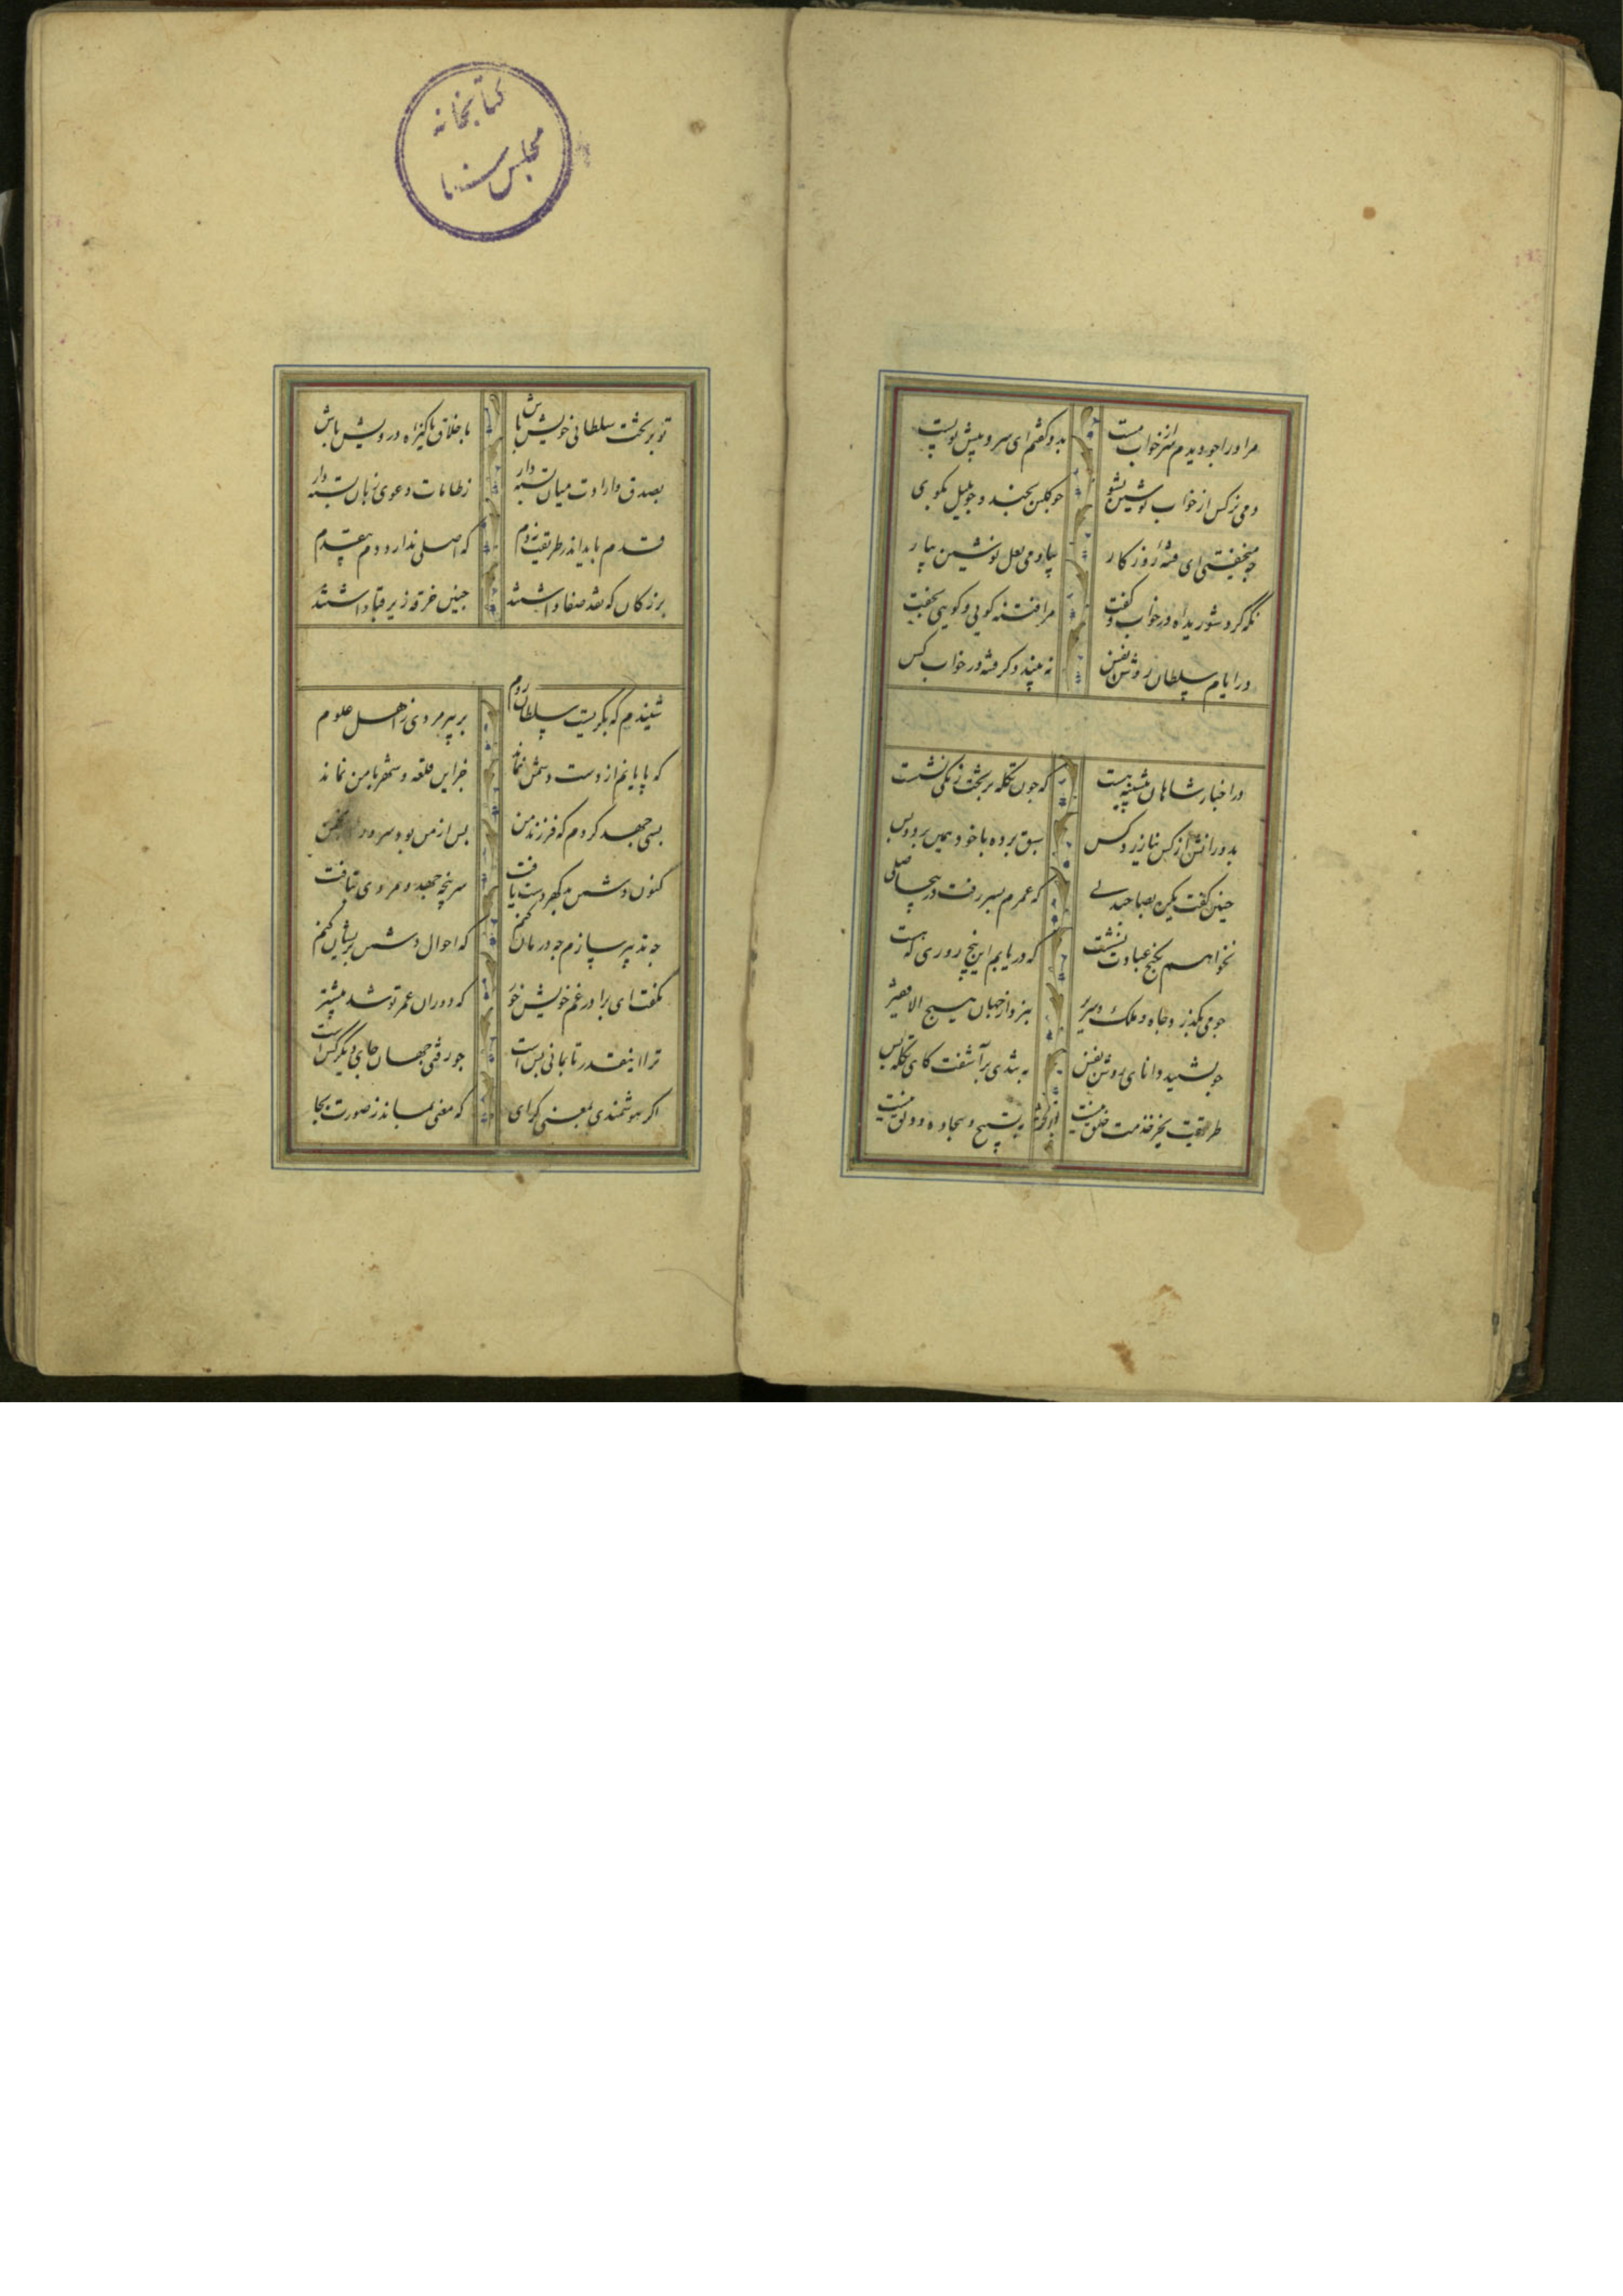 مرا ورا چو دیدم سر از خواب مست بدو گفتم ای سرو پیش تو پست
دمی نرکس از خواب نوشین بشوی چو کلبن بخند و چو بلبل بکوی
چه میخفتی ای فتنهٔ روزکار بیا و می لعل نوشین بیار
نکه کرد شوریده از خواب و کفت مرا فتنه کویی و کویی مخفت
در ایام سلطان روشن نفس نه بیند دکر فتنه در خواب کس
در اخبار شاهان پیشینه هست که چون تکله بر تخت زنکی نشست
بدورانش از کس نیازرد کس سبق برد ه با خود همین بود و بس
چنین کفت یکره بصاحبدلی که عمرم بسر رفت در بیحاصلی
بخواهم بکنج عبادت نشست که دریابم این پنج روزی که هست
چو می بکذرد جاه و ملک و سریر نبرد از جهان هیچ الا فقیر
چو بشنید دانای روشن نفس به تندی برآشفت کای تکله بس
طریقت بجز خدمت خلق نیست به تسبیح و سجاده و دلق نیست
کتابخانه
مجلس سنا
تو بر تخت سلطانی خویش باش باخلاق پاکیزه درویش باش
بصدق و ارادت میان بسته دار ز طامات و دعوی زبان بسته دار
قدم باید اندر طریقت نه دم که اصلی ندارد دم بیقدم
بزرکان که نقد صفا داشتند چنین خرقه زیر قبا داشتند
شنیدم که بکریست سلطان روم بر پیرمردی ز اهل علوم
که پایانم از دست دشمن نماند جز این قلعه و شهر با من نماند
بسی جهد کردم که فرزند من پس از من بود سرور انجمن
کنون دشمن بدکهر دست یافت سر پنجه جهد و مردی بتافت
چه تدبیر سازم چه درمان کنم که احوال دشمن پریشان کنم
بکفت ای برادر غم خویش خور که دوران عمر تو شد بیشتر
ترا اینقدر تا بمانی بس است چو رفتی جهان جای دیکر کس است
اکر هوشمندی بمعنی کرای که معنی بماند ز صورت بجا